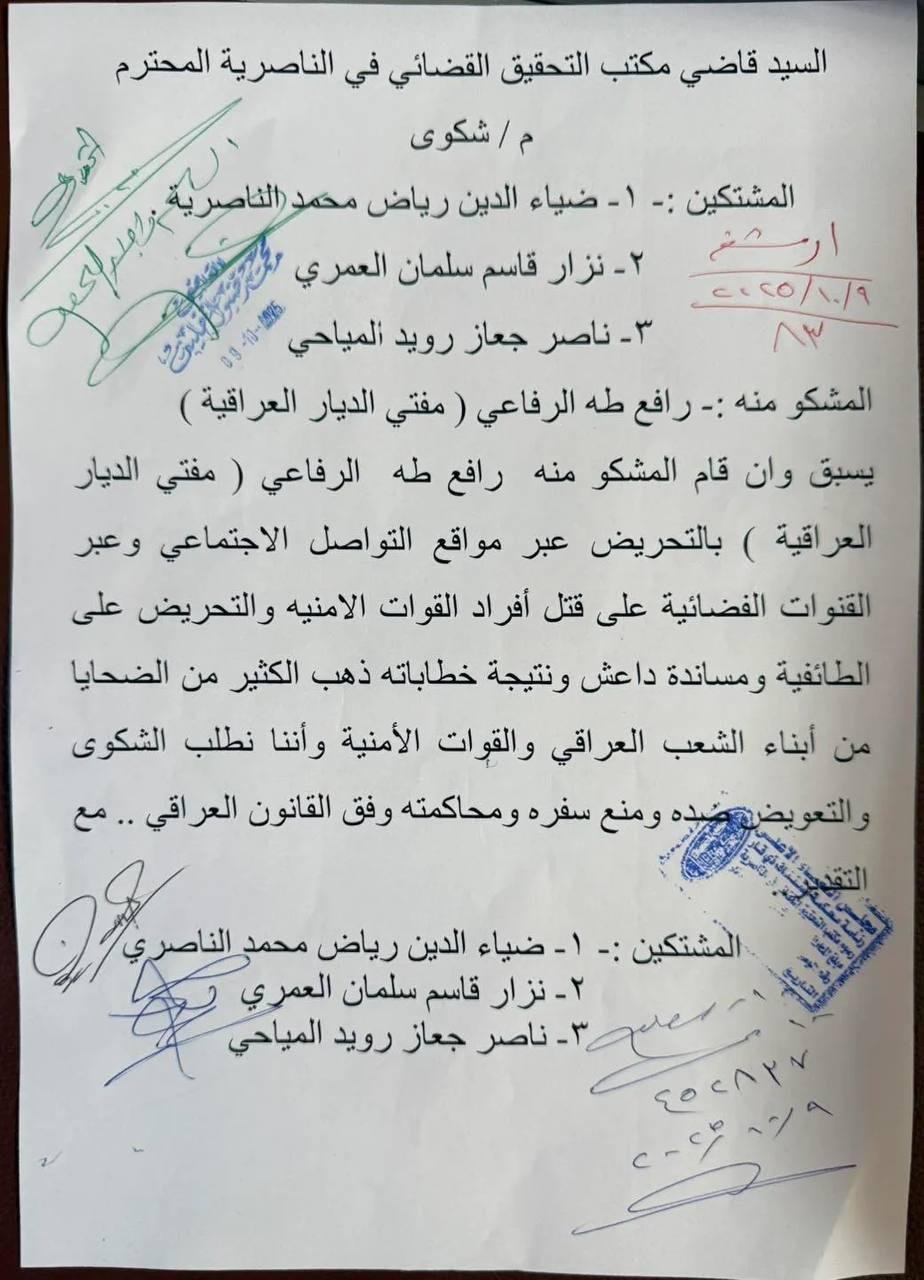 السيد قاضي مكتب التحقيق القضائي في الناصرية المحترم
م / شكوى
المشتكين :- ١- ضياء الدين رياض محمد الناصرية .
٢- نزار قاسم سلمان العمري
٣- ناصر جعاز رويد المياحي
ارشف
٢٠٢٥/١٠/٩
٨٣
09-10-2025
المشكو منه :- رافع طه الرفاعي ( مفتي الديار العراقية )
يسبق وان قام المشكو منه رافع طه الرفاعي ( مفتي الديار
العراقية ) بالتحريض عبر مواقع التواصل الاجتماعي وعبر
القنوات الفضائية على قتل أفراد القوات الامنيه والتحريض على
الطائفية ومساندة داعش ونتيجة خطاباته ذهب الكثير من الضحايا
من أبناء الشعب العراقي والقوات الأمنية وأننا نطلب الشكوى
والتعويض ضده ومنع سفره ومحاكمته وفق القانون العراقي .. مع
التقدير
المشتكين :- ١- ضياء الدين رياض محمد الناصري
٢- نزار قاسم سلمان العمري
٣- ناصر جعاز رويد المياحي